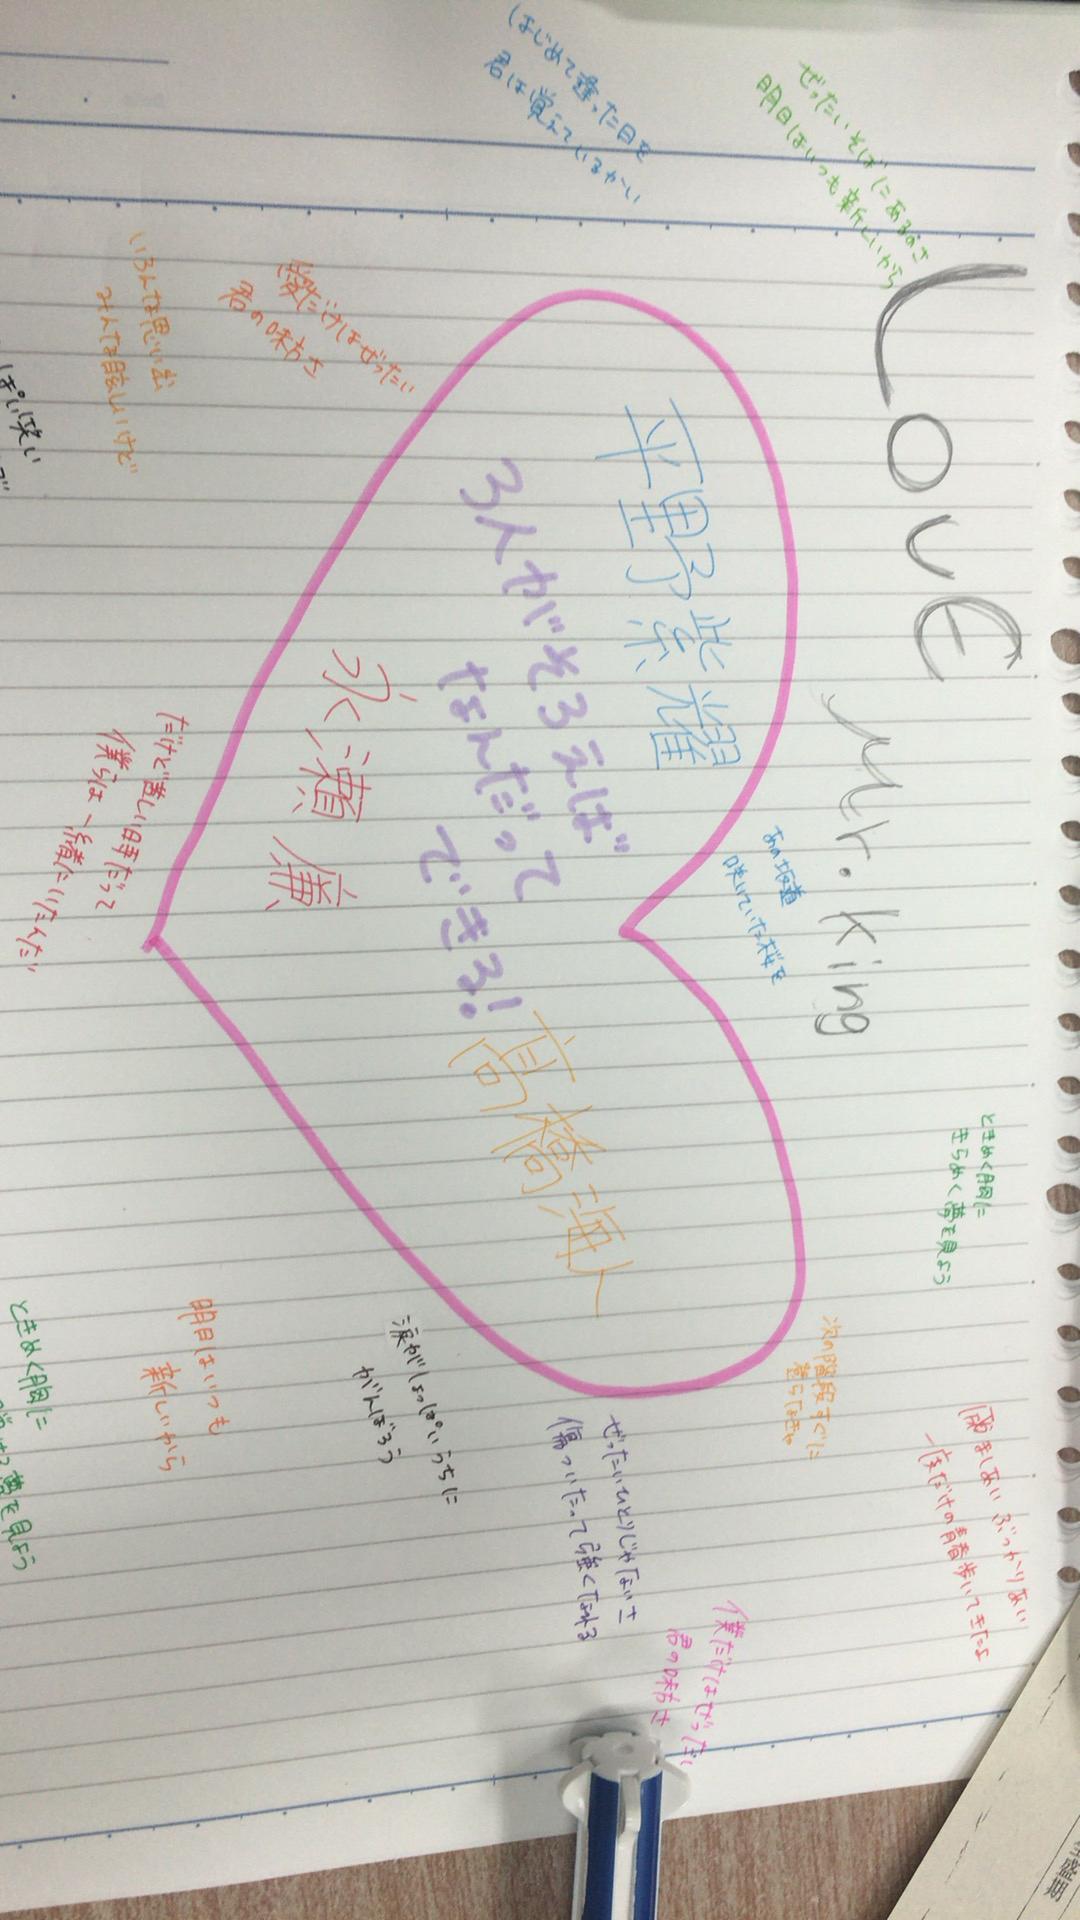 LOVE Mr.King
ぜったいそばにあるのさ
明日はいつも新しいから
はじめて逢った日を
君は覚えているかい
あの坂道
咲いていた桜を
ときめく胸に
きらめく夢を見よう
次の階段すぐに
登らなきゃ
励ましあい ぶつかりあい
一度だけの青春歩いてきたよ
平野紫耀
3人がそろえば
なんだって
できる!
永瀬廉
髙橋海人
僕だけはぜったい
君の味方さ
いろんな思い出
みんな眩しいけど
ぱい笑い
だけど苦しい時だって
僕らは一緒だったんだ
ぜったいひとりじゃないさ
傷ついたって強くなれる
僕だけはぜったい
君の味方さ
涙がしょっぱいうちに
がんばろう
明日はいつも
新しいから
ときめく胸に
夢を見よう
盛期